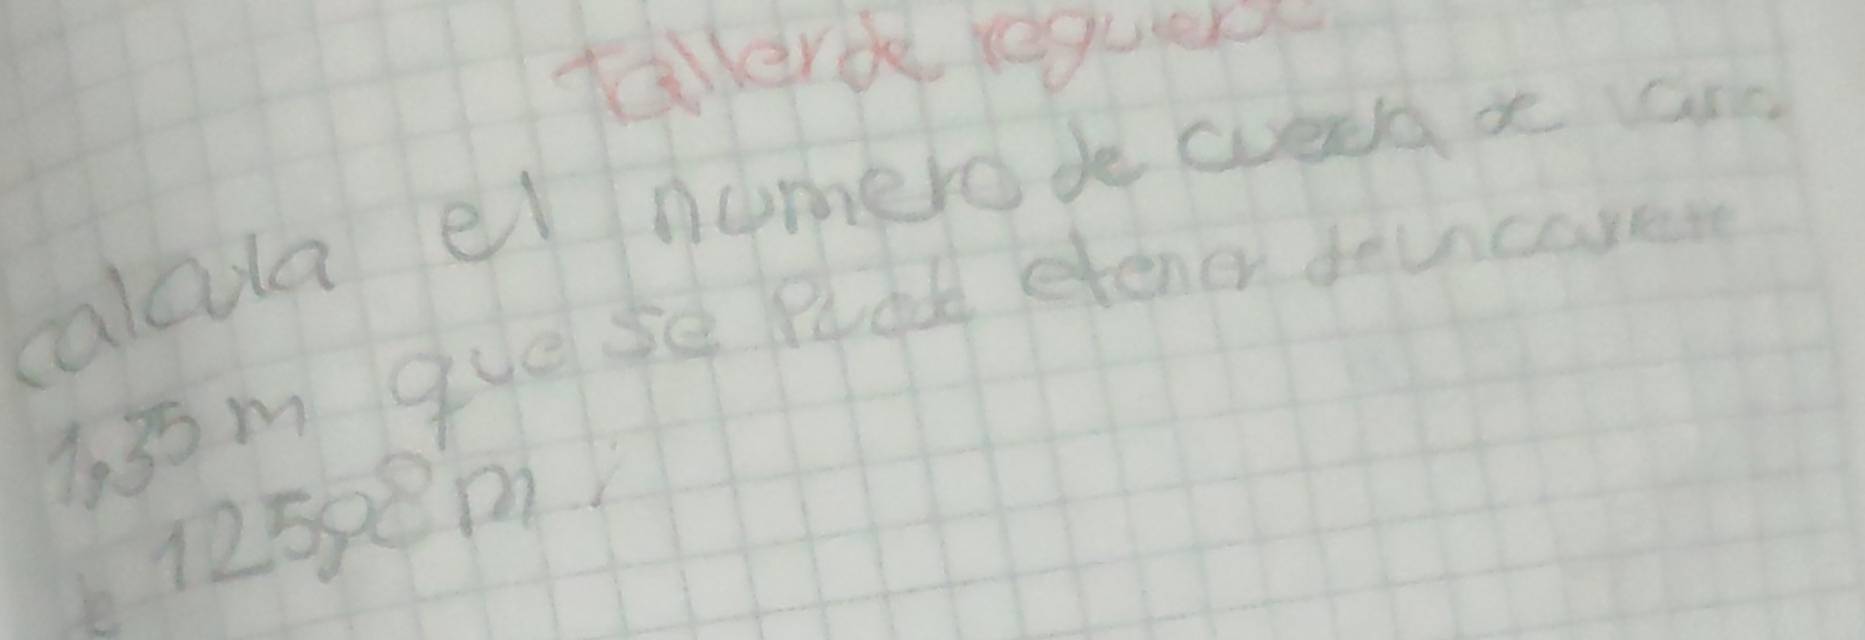 Taller de reguerzo
calcula el numero de cuerda de
1,35 m que se puede etener de un carrete
125,98 m